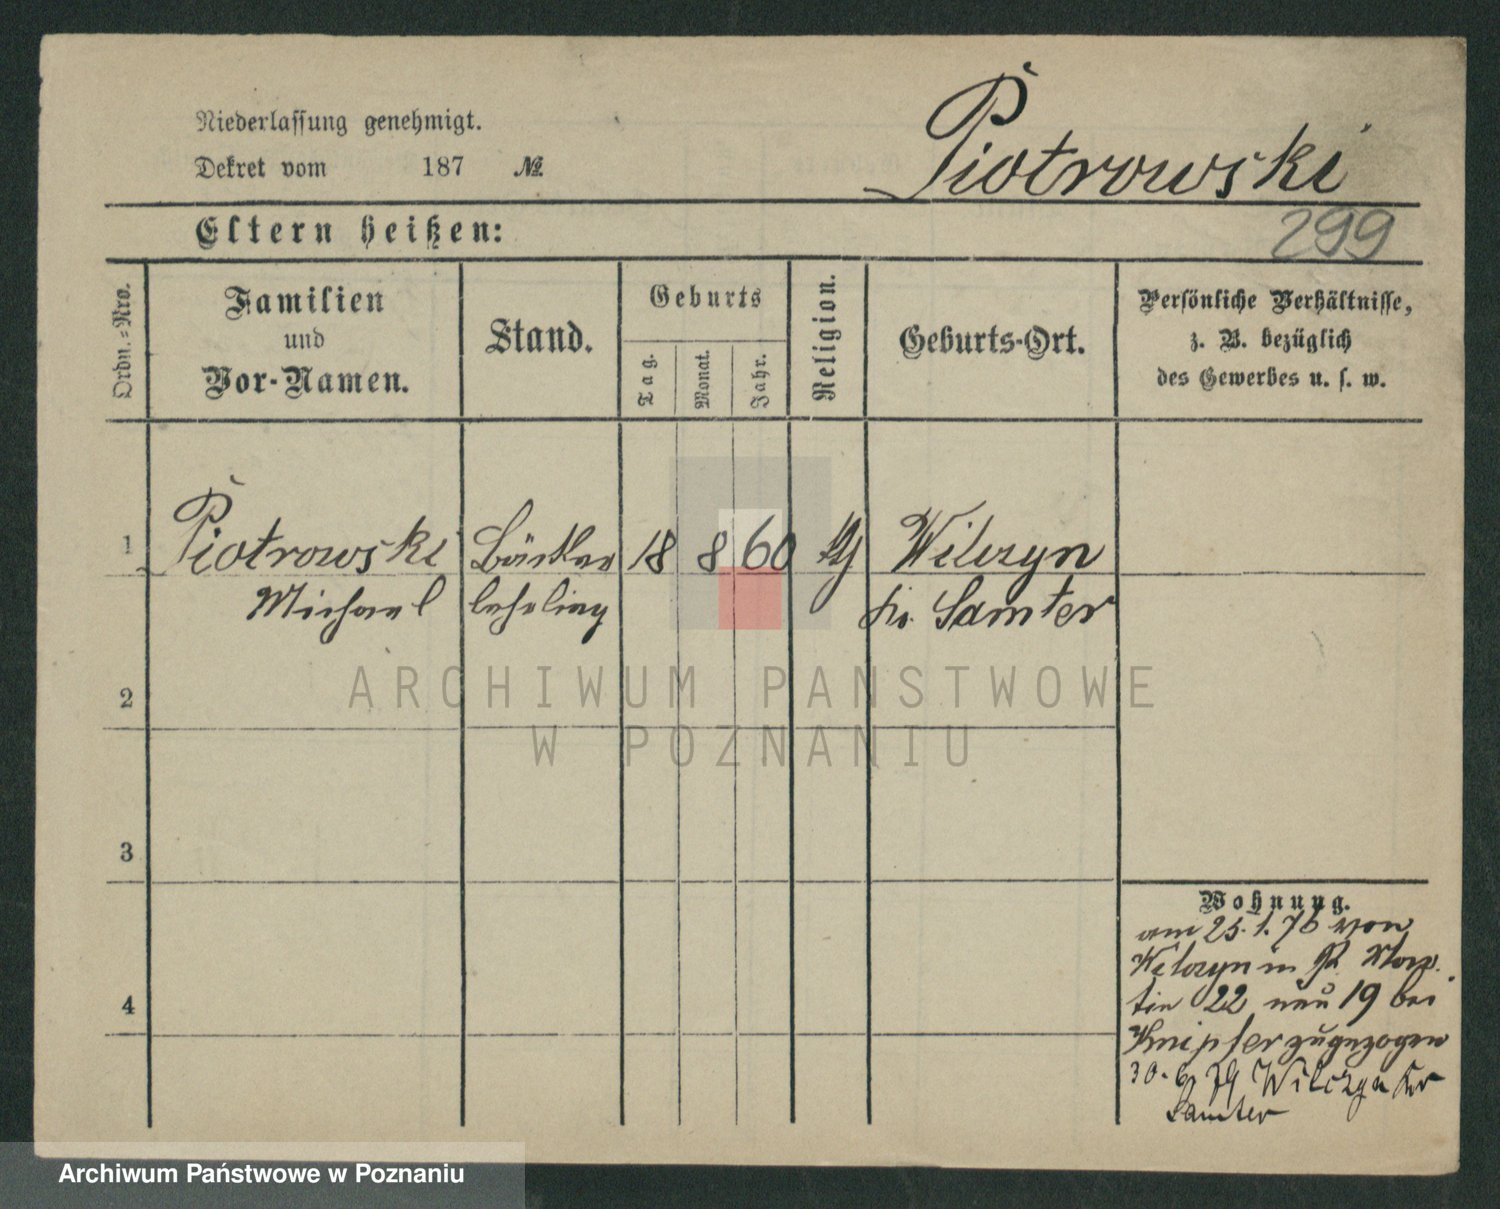 Niederlassung genehmigt.
Dekret vom 187 №
Piotrowski
299
Eltern heißen:
Ordn.-Nro.
Familien
und
Vor-Namen.
Stand.
Geburts
Tag.
Monat.
Jahr.
Religion.
Geburts-Ort.
Persönliche Verhältnisse,
z. B. bezüglich
des Gewerbes u. s. w.
1
Piotrowski Bäcker 18 8 60 Wilczyn
Michael lehrling Kr. Samter
2
3
4
Wohnung.
am 25. 1. 76 von
Wilczyn in
22 neu 19 bei
Knipfer zugezogen
30. 6 79 Wilczyn Kr
Samter
ARCHIWUM PANSTWOWE
W POZNANIU
Archiwum Państwowe w Poznaniu